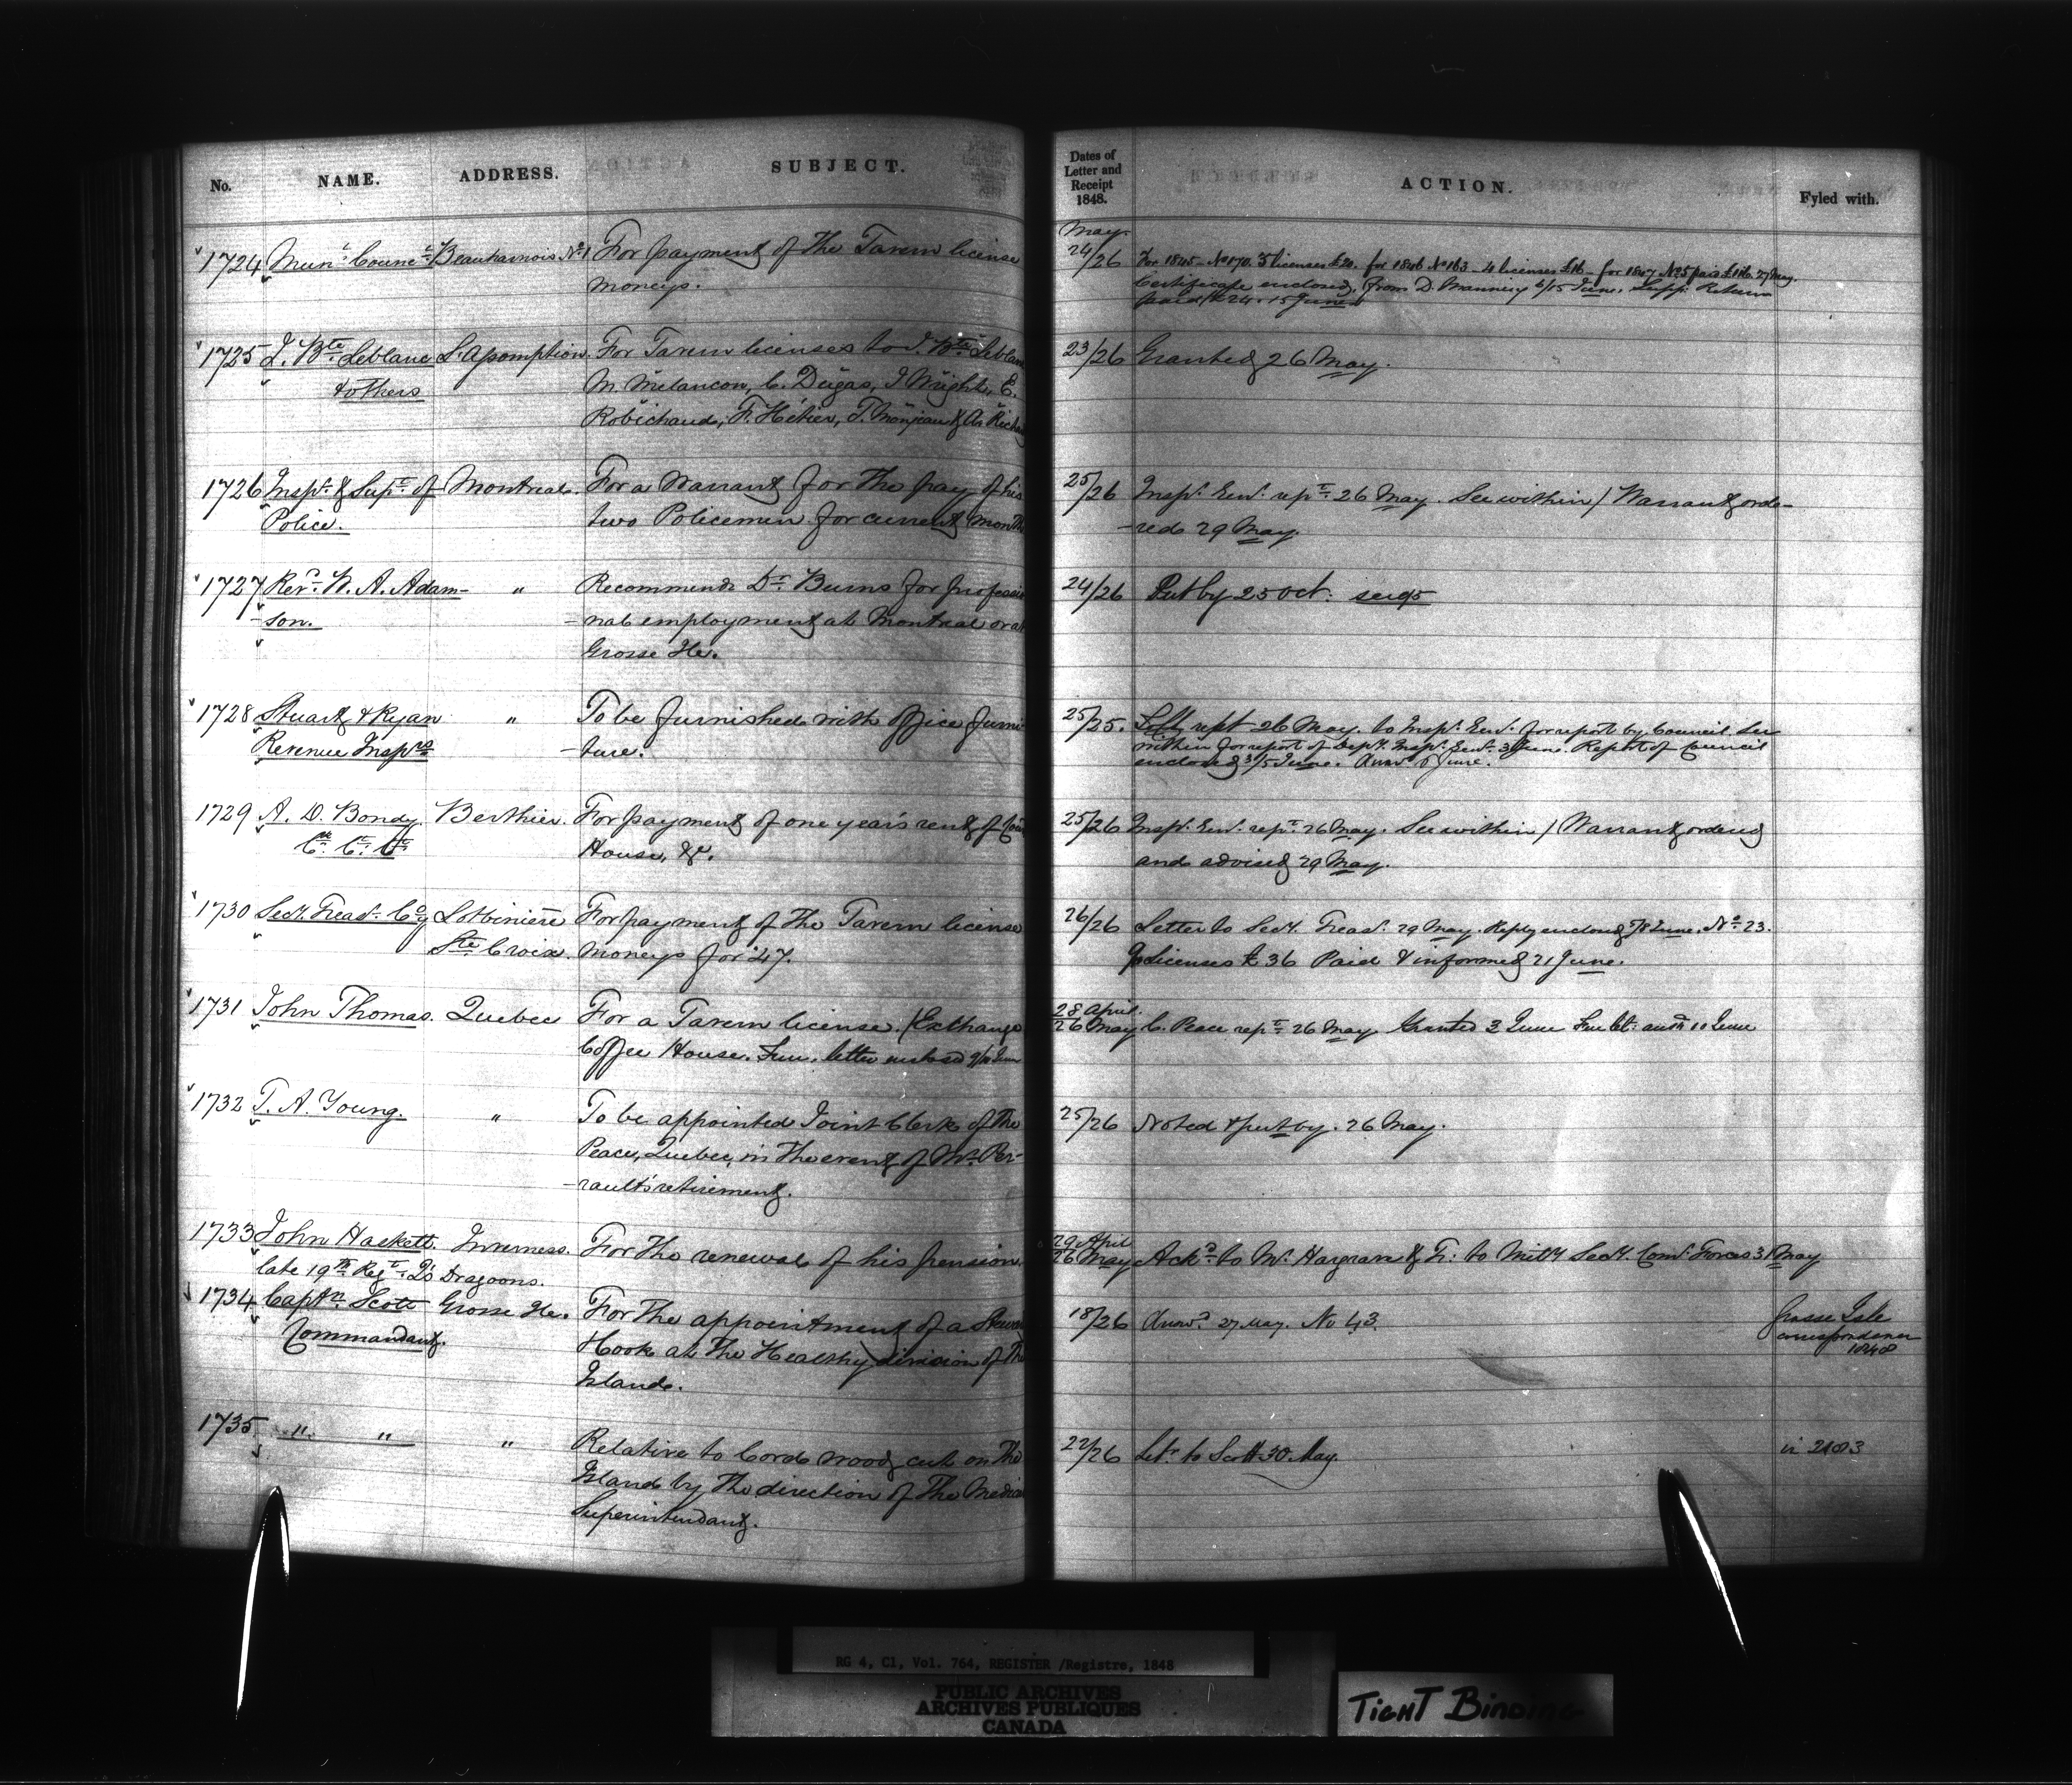 No. NAME. ADDRESS. SUBJECT.
1724 Mun.l Counc.l Beauharnois No. 1 For payment of the Tavern license
moneys.
1725 J. Bte Leblanc L'Assomption. For Tavern licenses to J. Bte Leblanc
& others M. Melancon, C. Dugas, J Wright, E.
Robichaud, F. Hétier, T. Monjeau &
1726 Insp.r & Sup.t of Montreal. For a Warrant for the pay of his
Police. two Policemen for current month
1727 Rev.d W. A. Adam- " Recommends Dr. Burns for professio
-son. -nal employment at Montreal or at
Grosse Ile.
1728 Stuart & Ryan " To be furnished with office furni
Revenue Insp.rs -ture.
1729 A. D. Bondy Berthier. For payment of one year's rent of Court
C.k C.t C.t House, &c.
1730 Secy. Treas.r Coy Lotbinière For payment of the Tavern license
Ste Croix. moneys for '47.
1731 John Thomas. Quebec For a Tavern license. (Exchange
Coffee House. Fur. letter enclosed 9/10 June
1732 T. A. Young. " To be appointed Joint Clerk of the
Peace, Quebec, in the event of Mr. Per-
-rault's retirement.
1733 John Haskett. Inverness. For the renewal of his pension.
late 19th Reg.t Dragoons.
1734 Capt.n Scott Grosse Ile. For the appointment of a
Commandant. Hook at the Healthy division of the
Island.
1735 " " " Relative to Cord wood cut on the
Island by the direction of the Medical
Superintendant.
Dates of
Letter and
Receipt
1848.
ACTION. Fyled with.
May
24/26 For 1845 - No 170. 5 licenses £20. for 1846 No 163 - 4 licenses £16 - for 1847 No 5 paid 27 May.
Certificate enclosed, from D. Manning 6/15 June. Supp. Return
paid 15 June
23/26 Granted 26 May.
25/26 Insp.r Gen.l rep.t 26 May. See within / Warrant orde-
-red 29 May.
24/26 Put by 25 Oct:
25/25. rept 26 May. to Insp.r Gen.l for report by Council See
within for report of Depy. Insp.r Gen.l 3 June. Report of Council
enclosed 3/5 June. Answd 8 June.
25/26 Insp.r Gen.l rep.t 26 May. See within / Warrant ordered
and advised 29 May.
26/26 Letter to Secy. Treas.r 29 May. Reply enclosed 7/8 June. No. 23.
9 Licenses £36 Paid & informed 21 June.
28 April.
26 May C. Peace rep.t 26 May. Granted 3 June
25/26 Noted & put by. 26 May.
29 April
26 May Ack.d to Mr. Hargrave & Tr: to Mil'y Secy. Com.r Forces 31 May
18/26 Answ.d 27 May. No 43. Grosse Isle
correspondence
1848
22/26 Let.r to Scott 30 May. in 2103
RG 4, C1, Vol. 764, REGISTER /Registre, 1848
PUBLIC ARCHIVES
ARCHIVES PUBLIQUES
CANADA
TIGHT BINDING